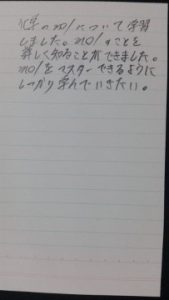 化学のmolについて学習
しました。molのことを
詳しく知ることができました。
molをマスターできるように
しっかり学んでいきたい。